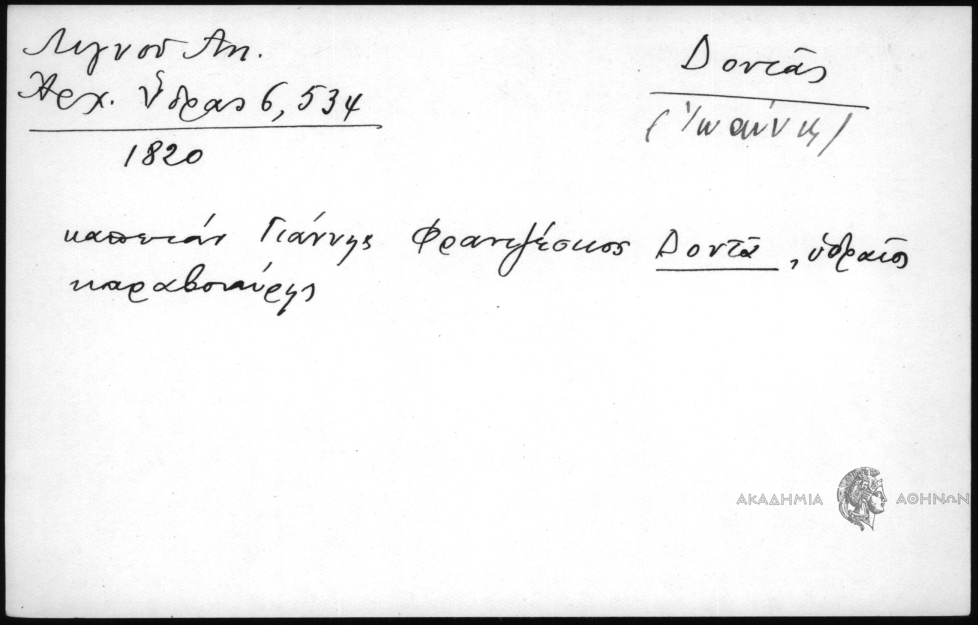 Λιγνού Αη.
Αρχ. Ύδρας 6, 534
1820
Δοντᾶς
(Ἰωάννης)
καπετάν Γιάννης Φραντζέσκος Δοντᾶ, ὑδραῖος
καραβοκύρης
ΑΚΑΔΗΜΙΑ ΑΘΗΝΩΝ